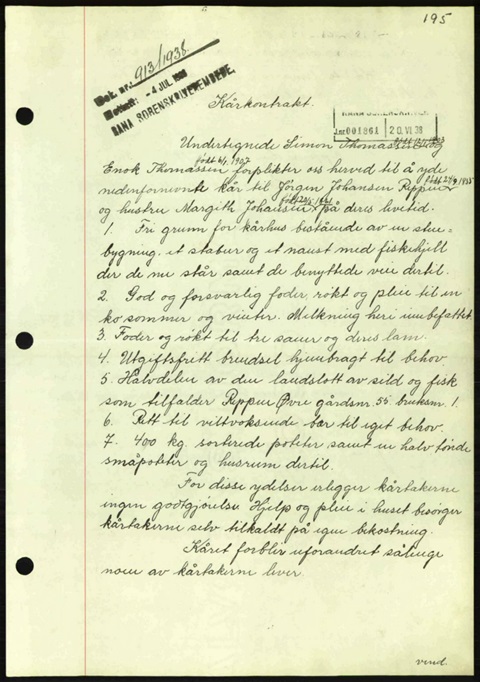 195
Dok. nr. 913/1938.
Mottatt: - 4 JUL 1938
RANA SORENSKRIVEREMBEDE.
Kårkontrakt.
001861 20.VI.38
Undertegnede Simon Thomassen og
Enok Thomassen født 6/1 1907 forplikter oss herved til å yde
nedenfornevnte kår til Jørgen Johansen Reppen
og hustru Margith Johansen på deres livetid.
1. Fri grunn for kårhus bestående av en stue-
bygning, et stabur og et naust med fiskehjell
der de nu står samt de benyttede veie dertil.
2. God og forsvarlig foder, røkt og pleie til en
ko sommer og vinter. Melkning heri innbefattet.
3. Foder og røkt til tre sauer og deres lam.
4. Utgiftsfritt brendsel hjembragt til behov.
5. Halvdelen av den landslott av sild og fisk
som tilfalder Reppen Øvre gårdsnr. 55 bruksnr. 1.
6. Rett til viltvoksende bær til eget behov.
7. 400 kg. sorterede poteter samt en halv tønde
småpoteter og husrum dertil.
For disse ydelser erlegger kårtakerne
ingen godtgjørelse. Hjelp og pleie i huset besørger
kårtakerne selv tilkaldt på egen bekostning.
Kåret forblir uforandret sålenge
noen av kårtakerne lever.
vend.